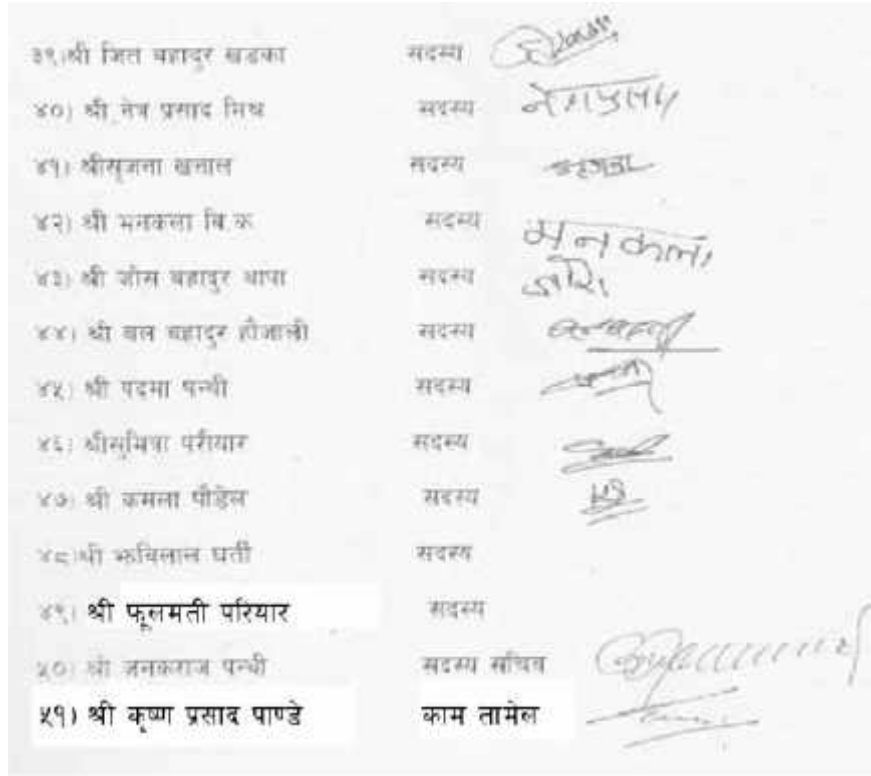 ३९।श्री जित बहादुर खडका सदस्य
४०) श्री नेत्र प्रसाद मिश्र सदस्य नेत्रप्रसाद
४१) श्रीसृजना खनाल सदस्य सृजना
४२) श्री मनकला वि.क सदस्य मनकला
४३) श्री जोस बहादुर थापा सदस्य
४४) श्री बल बहादुर हौजाली सदस्य
४५) श्री पदमा पन्थी सदस्य
४६) श्रीसुमित्रा परीयार सदस्य
४७) श्री कमला पौडेल सदस्य
४८)श्री झविलाल घर्ती सदस्य
४९) श्री फूलमती परियार सदस्य
५०) श्री जनकराज पन्थी सदस्य सचिव
५१) श्री कृष्ण प्रसाद पाण्डे काम तामेल